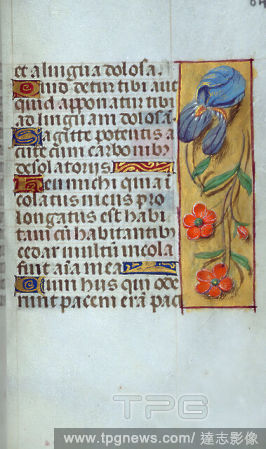 et a lingua dolosa.
Quid detur tibi aut
quid apponatur tibi
ad linguam dolosā.
Sagitte potentis a
cute cum carbonibꝰ
desolatoriis.
Heu michi quia i
colatus meus pro
longatus est habi
taui cū habitantibꝰ
cedar multū incola
fuit aīa mea.
Cum hiis qui ode
runt pacem erā pac
TPG
www.tpgnews.com / 達志影像